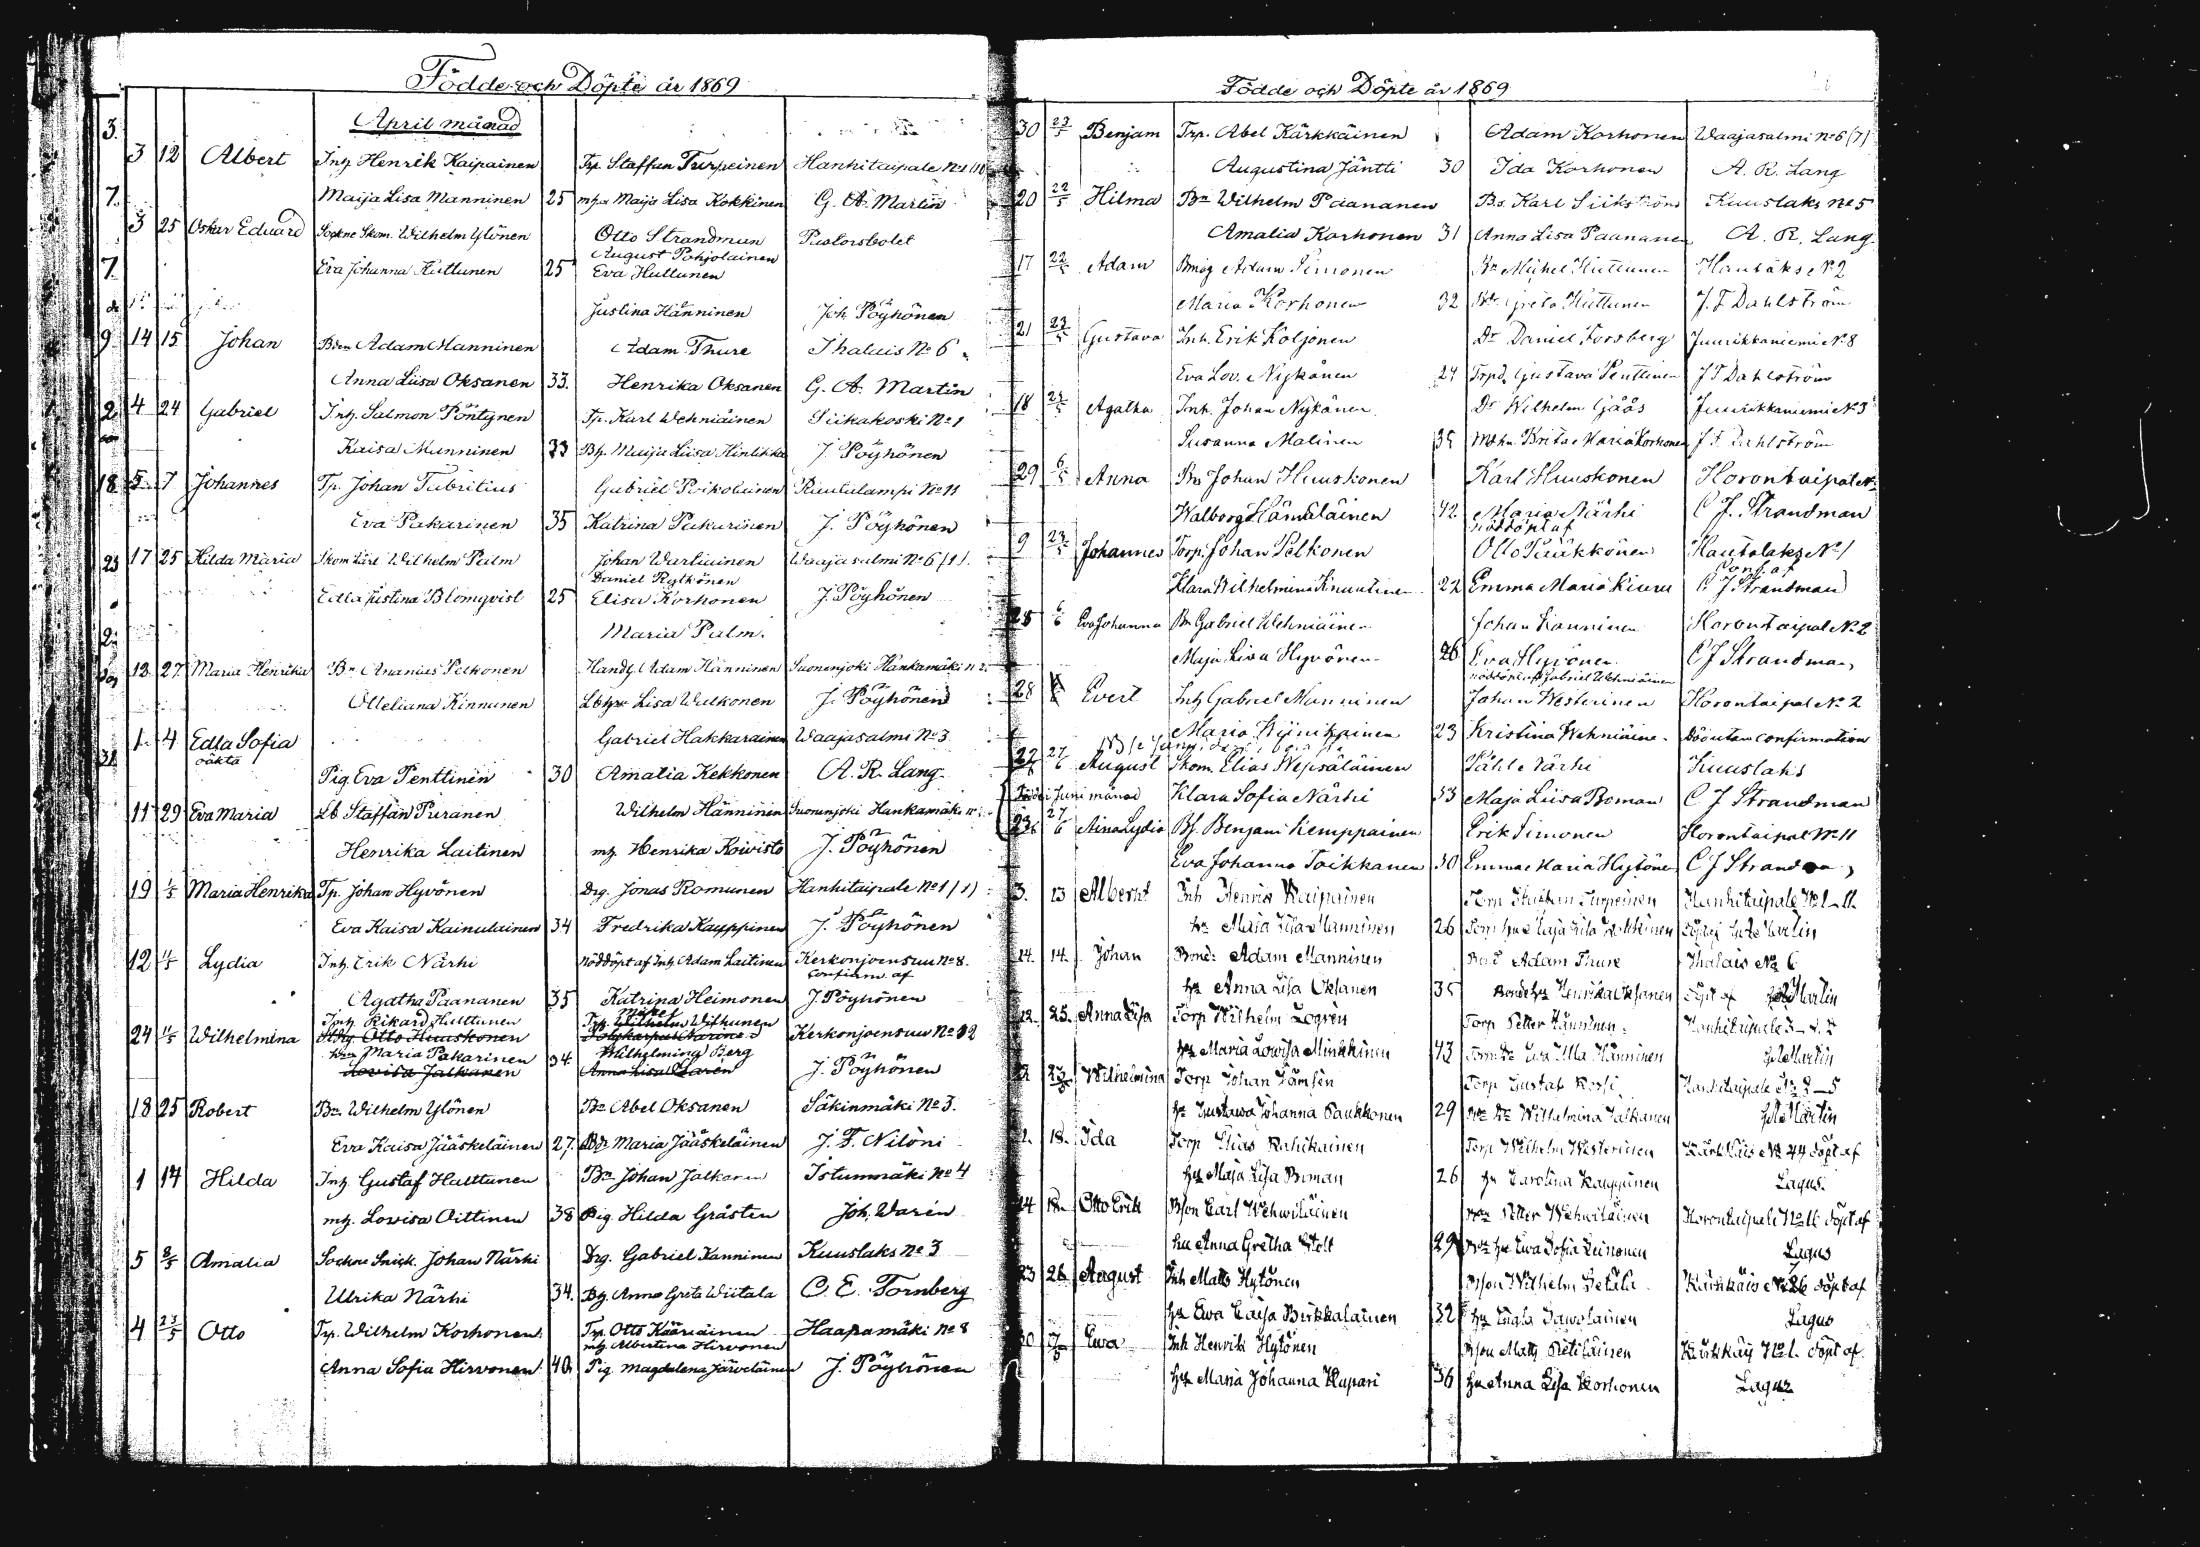 Födde och Döpte år 1869
April månad
3 12 Albert Inh. Henrik Kaipainen Trp. Staffan Turpeinen Hanhitaipale No 1
Maija Lisa Manninen 25 Maija Lisa Kokkinen G. A. Martin
3 25 Oskar Eduard Sockne Skom. Wilhelm Ylönen Otto Strandman Pastorsbolet
August Pohjolainen
Eva Johanna Huttunen 25 Eva Huttunen
Justina Hänninen Joh Pöyhönen
14 15 Johan Adam Manninen Adam Thure Ihalais No 6
Anna Liisa Oksanen 33. Henrika Oksanen G. A. Martin
4 24 Gabriel Inh. Salmon Pöntynen Tp. Karl Wehniäinen Siikakoski No 1
Kaisa Manninen 33 Maija Liisa Hintikka J. Pöyhönen
5 7 Johannes Tp. Johan Tabritius Gabriel Poikolainen Ruutulampi No 11
Eva Pakarinen 35 Katrina Pakarinen J. Pöyhönen
17 25 Hilda Maria Skom lärl Wilhelm Palm Johan Wartiainen Waajasalmi No 6/1).
Daniel Rytkönen
Edla Justina Blomqvist 25 Elisa Korhonen J. Pöyhönen
Maria Palm.
13 27 Maria Henrika Bn Ananias Pelkonen Handl. Adam Hänninen Suonenjoki Hankamäki n 2
Otteliana Kinnunen Lisa Wulkonen J. Pöyhönen
1. 4 Edla Sofia Gabriel Hakkarainen Waajasalmi No 3
oäkta
Pig. Eva Penttinen 30 Amalia Kekkonen A. R. Lang
11 29 Eva Maria Lb Staffan Puranen Wilhelm Hänninen Suonenjoki Hankamäki
Henrika Laitinen mh. Henrika Koivisto J. Pöyhönen
19 1/5 Maria Henrika Tp. Johan Hyvönen Drg. Jonas Romunen Hanhitaipale No 1/1)
Eva Kaisa Kainulainen 34 Fredrika Kauppinen J. Pöyhönen
12 Lydia Inh. Erik Närhi nöddöpt af Inh. Adam Laitinen Kerkonjoensuu No 8.
Confirm. af
Agatha Paananen 35 Katrina Heimonen J. Pöyhönen
Inh. Rikard Huttunen
24 Wilhelmina Otto Huuskonen Kerkonjoensuu No 12
Maria Pakarinen 34 Wilhelmina Berg
Lovisa Jalkanen Anna Lisa J. Pöyhönen
18 25 Robert Bn. Wilhelm Ylönen Bn Abel Oksanen Säkinmäki No 3.
Eva Kaisa Jääskeläinen 27. Maria Jääskeläinen J. F. Niloni
1 14 Hilda Inh. Gustaf Huttunen Bn Johan Jalkanen Istunmäki No 4
mh. Lovisa Aittinen 38 Pig. Hilda Gråsten Joh. Warén
5 8/5 Amalia Sockne Snick. Johan Närhi Drg. Gabriel Kanninen Kuuslaks No 3
Ulrika Närhi 34. Anna Greta Wiitala C. E. Tornberg
4 23/5 Otto Trp. Wilhelm Korhonen Trp. Otto Kääriäinen Haapamäki No 8
mh. Albertina Hirvonen
Anna Sofia Hirvonen 40. Pig. Magdalena Järveläinen J. Pöyhönen
Födde och Döpte år 1869
30 23/5 Benjam Trp. Abel Kärkkäinen Adam Korhonen Waajasalmi No 6 (7)
Augustina Jäntti 30 Ida Korhonen A. R. Lang
20 22/5 Hilma Bn Wilhelm Paananen B.s. Karl Siikström Kuuslaks No 5
Amalia Korhonen 31 Anna Lisa Paananen A. R. Lang.
17 22/5 Adam Adam Simonen Bn Michel Huttunen Hautolaks No 2
Maria Korhonen 32 Greta Huttunen J. F. Dahlström
21 23/5 Gustava Inh. Erik Koljonen Dr Daniel Forsberg Juurikkaniemi No 8
Eva Lov. Nykänen 24 Gustava Penttinen J F Dahlström
18 Agatha Inh. Johan Nykänen Dr Wilhelm Gåås Juurikkaniemi No 3
Susanna Malinen 35 Brita Maria Korhonen J F Dahlström
29 6/5 Anna Bn Johan Huuskonen Karl Huuskonen Horontaipal No
Walborg Hämäläinen 42 Maria Närhi C J. Strandman
nöddöpt af
9 23/5 Johannes Torp. Johan Pelkonen Otto Pääkkönen Hautolaks No 1
Conf. af
Klara Wilhelmina Knuutinen 22 Emma Maria Kiuru C J Strandman
28 Eva Johanna Bn Gabriel Wehniäinen Johan Kanninen Horontaipal No 2
Maja Lisa Hyvönen 26 Eva Hyvönen C J Strandman
nöddöpt af Gabriel Wehniäinen
28 Evert Inh Gabriel Manninen Johan Westerinen Horontaipal No 2
Maria 23 Kristina Wehniäinen Död utan confirmation
27/6 August Skom. Elias Wepsäläinen Påhl Närhi Kuuslaks
Juni månad Klara Sofia Närhi 33 Maja Liisa Boman C J Strandman
27/6 Aina Lydia Bs. Benjam Kemppainen Erik Simonen Horontaipal No 11
Eva Johanna Toikkanen 30 Emma Maria Hytönen C J Strandman
3. 13 Albernt Inh Henrik Kaipainen Torp Staffan Turpeinen Hanhitaipale No 1
Maja Lisa Manninen 26 Maja Lisa Kokkinen Martin
14. 14. Johan Bond: Adam Manninen Adam Thure Ihalais No 6
hu Anna Lisa Oksanen 35 Bonde hu Henrika Oksanen döpt af Martin
25. Anna Lisa Torp Wilhelm Logrén Torp Petter Hänninen. Hanhitaipale
hu Maria Lowisa Minkkinen 43 Ewa Ulla Hänninen Martin
Wilhelmina Torp Johan Jämsén Torp Gustaf Kossi Hanhitaipale
hu Gustawa Johanna Paukkonen 29 Wilhelmina Jalkanen Martin
18. Ida Torp Elias Rahikainen Torp Wilhelm Westerinen Kärkkäis No 44 döpt af
hu Maja Lisa Boman 26 hu Karolina Kauppinen Lagus.
14 18. Otto Erik Bson Carl Wehwiläinen Petter Wehwiläinen Horontaipale No 16 döpt af
hu Anna Gretha Stolt 29 Ewa Sofia Leinonen Lagus
23 26 August Inh Matts Hytönen Bson Wilhelm Setälä Kärkkäis No 26 döpt af
hu Ewa Caisa Birkkalainen 32 hu Ingla Sawolainen Lagus
30 Ewa Inh Henrik Hytönen Bson Matts Pietiläinen Kärkkäis No 1. döpt af
hu Maria Johanna Kupari 36 hu Anna Lisa Korhonen Lagus